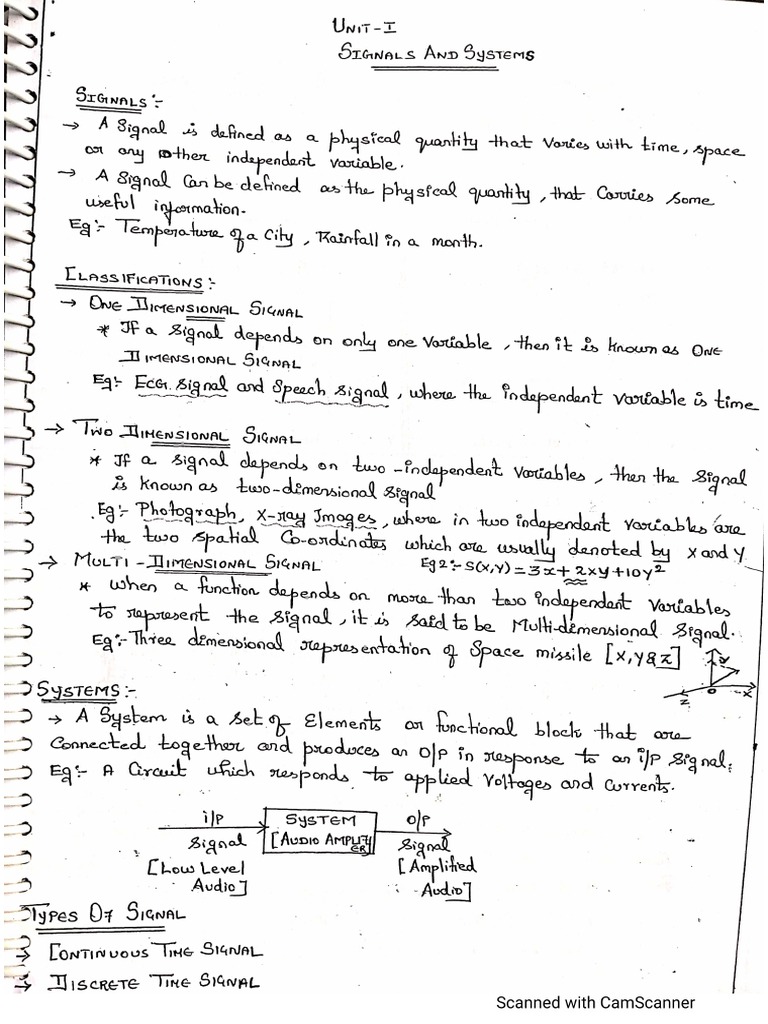 UNIT-I
SIGNALS AND SYSTEMS
SIGNALS:-
→ A Signal is defined as a physical quantity that Varies with time, space
or any other independent variable.
→ A Signal Can be defined as the physical quantity, that Carries Some
useful information.
Eg:- Temperature of a City, Rainfall in a month.
CLASSIFICATIONS:-
→ ONE DIMENSIONAL SIGNAL
* If a Signal depends on only one Variable, then it is known as ONE
DIMENSIONAL SIGNAL
Eg:- ECG Signal and Speech Signal, where the independent variable is time
→ TWO DIMENSIONAL SIGNAL
* If a signal depends on two-independent Variables, then the Signal
is known as two-dimensional Signal
Eg:- Photograph, X-ray Images, where in two independent variables are
the two spatial Co-ordinates which are usually denoted by X and Y
Eg2:- S(x,y) = 3x+2xy+10y²
→ MULTI-DIMENSIONAL SIGNAL
* When a function depends on more than two independent Variables
to represent the Signal, it is Said to be Multi-dimensional Signal.
Eg:- Three dimensional representation of Space missile [X,Y&Z]
Y
Z O X
SYSTEMS:-
→ A System is a set of Elements or functional block that are
Connected together and produces an O/P in response to an i/P Signal.
Eg:- A Circuit which responds to applied Voltages and Currents.
i/P SYSTEM O/P
Signal [AUDIO AMPLIFIER] Signal
[Low Level [Amplified
Audio] Audio]
TYPES OF SIGNAL
→ CONTINUOUS TIME SIGNAL
→ DISCRETE TIME SIGNAL
Scanned with CamScanner